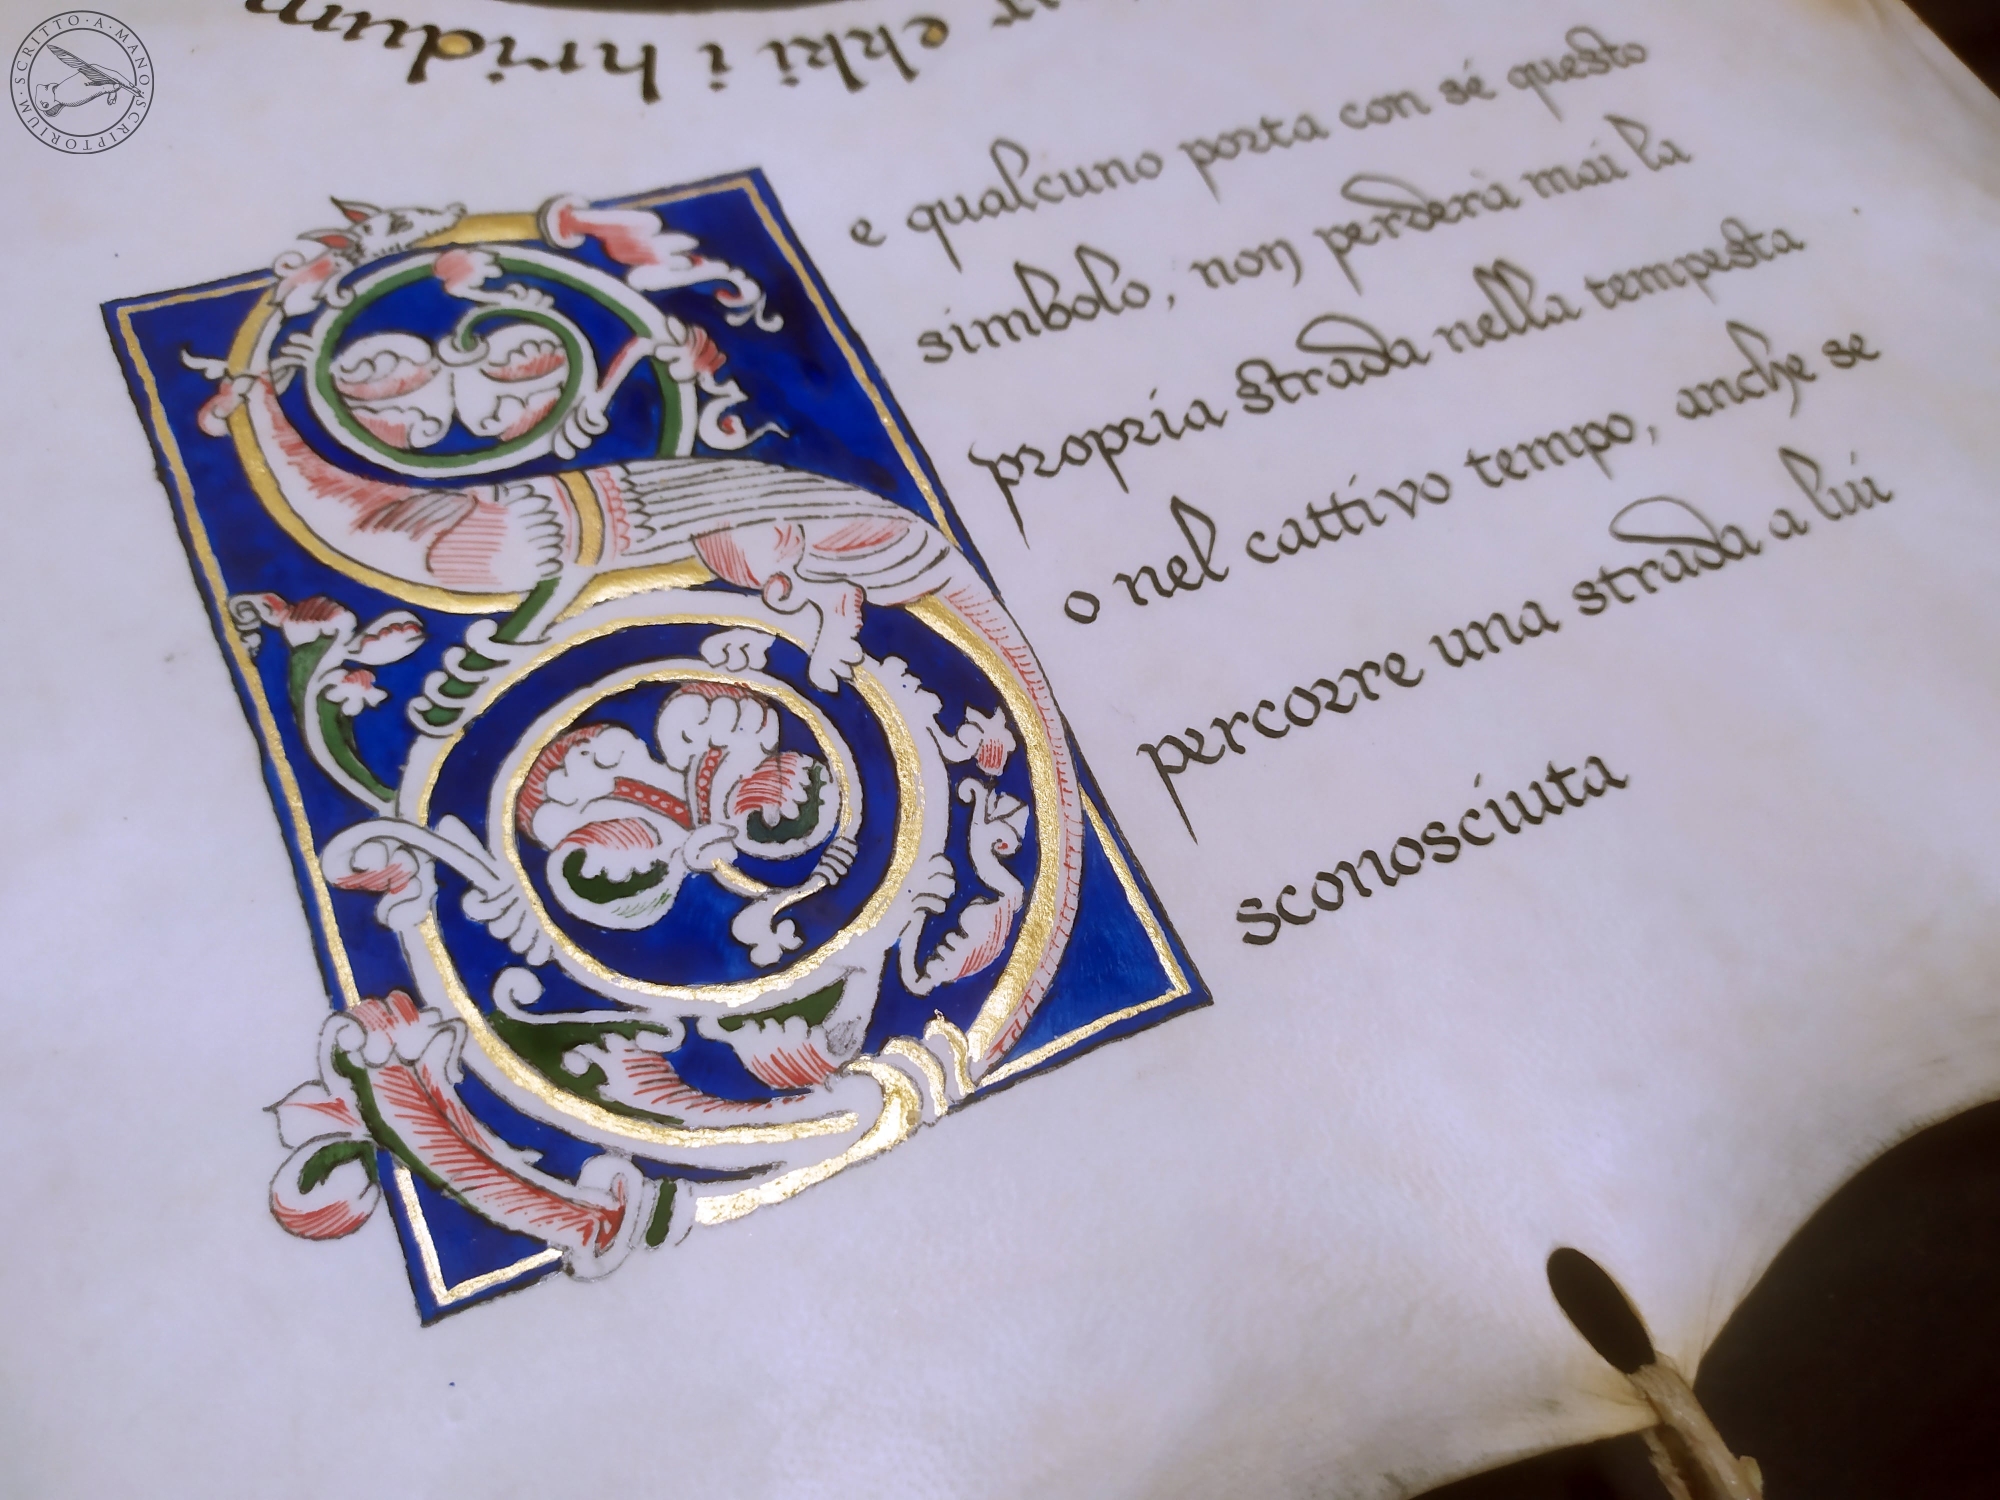 SCRITTO · A · MANO · SCRIPTORIUM ·
ekki i hridum
Se qualcuno porta con sé questo
simbolo, non perderà mai la
propria strada nella tempesta
o nel cattivo tempo, anche se
percorre una strada a lui
sconosciuta